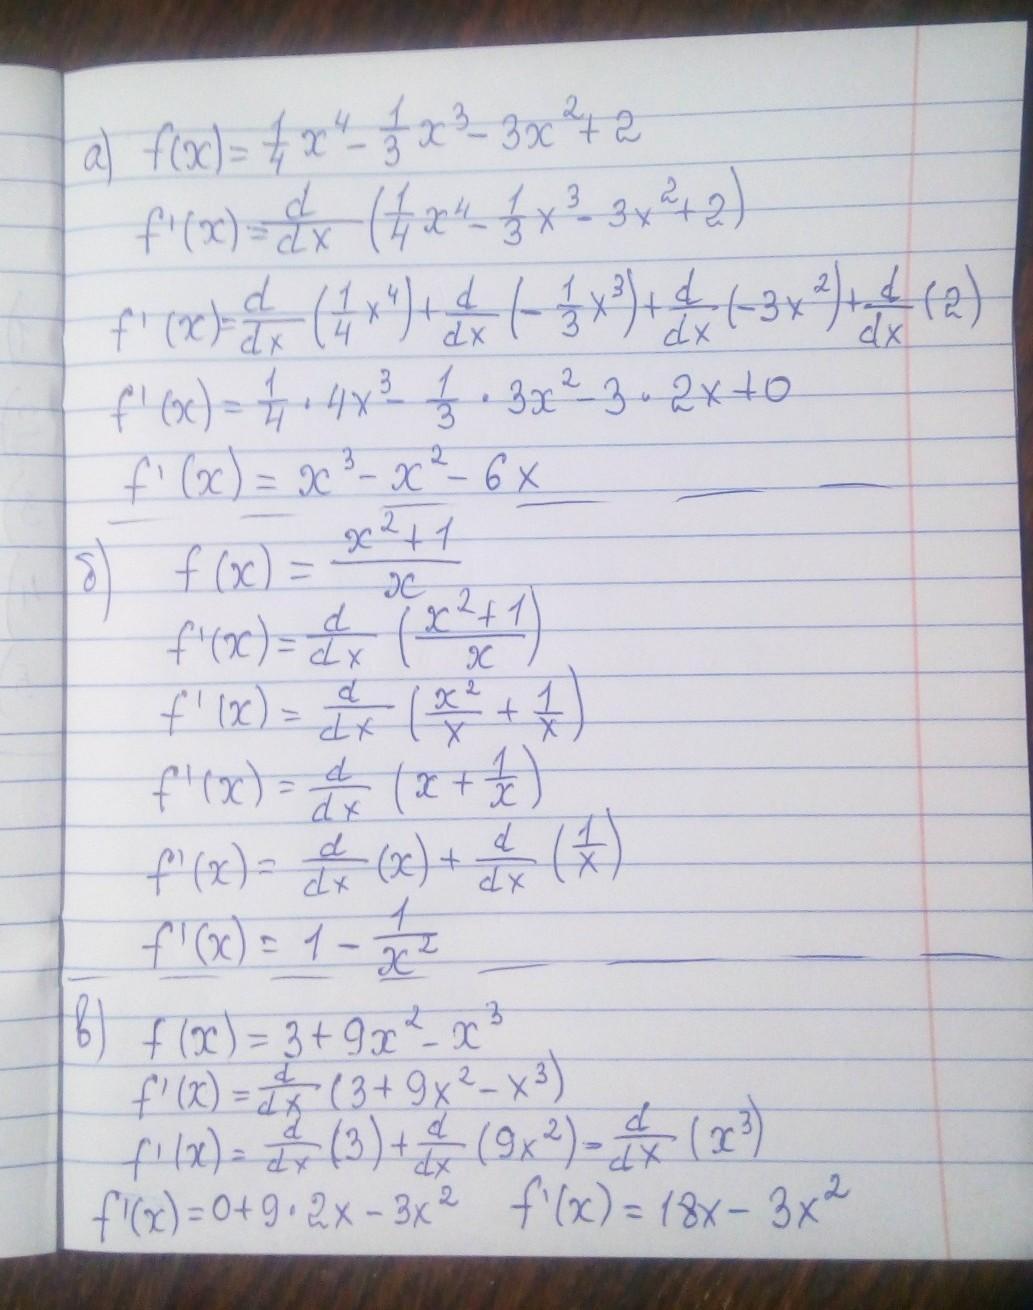 а) f(x) = 1/4 x⁴ - 1/3 x³ - 3x² + 2
f'(x) = d/dx (1/4 x⁴ - 1/3 x³ - 3x² + 2)
f'(x) = d/dx (1/4 x⁴) + d/dx (- 1/3 x³) + d/dx (-3x²) + d/dx (2)
f'(x) = 1/4 · 4x³ - 1/3 · 3x² - 3 · 2x + 0
f'(x) = x³ - x² - 6x
б) f(x) = (x² + 1)/x
f'(x) = d/dx ((x² + 1)/x)
f'(x) = d/dx (x²/x + 1/x)
f'(x) = d/dx (x + 1/x)
f'(x) = d/dx (x) + d/dx (1/x)
f'(x) = 1 - 1/x²
в) f(x) = 3 + 9x² - x³
f'(x) = d/dx (3 + 9x² - x³)
f'(x) = d/dx (3) + d/dx (9x²) = d/dx (x³)
f'(x) = 0 + 9 · 2x - 3x² f'(x) = 18x - 3x²